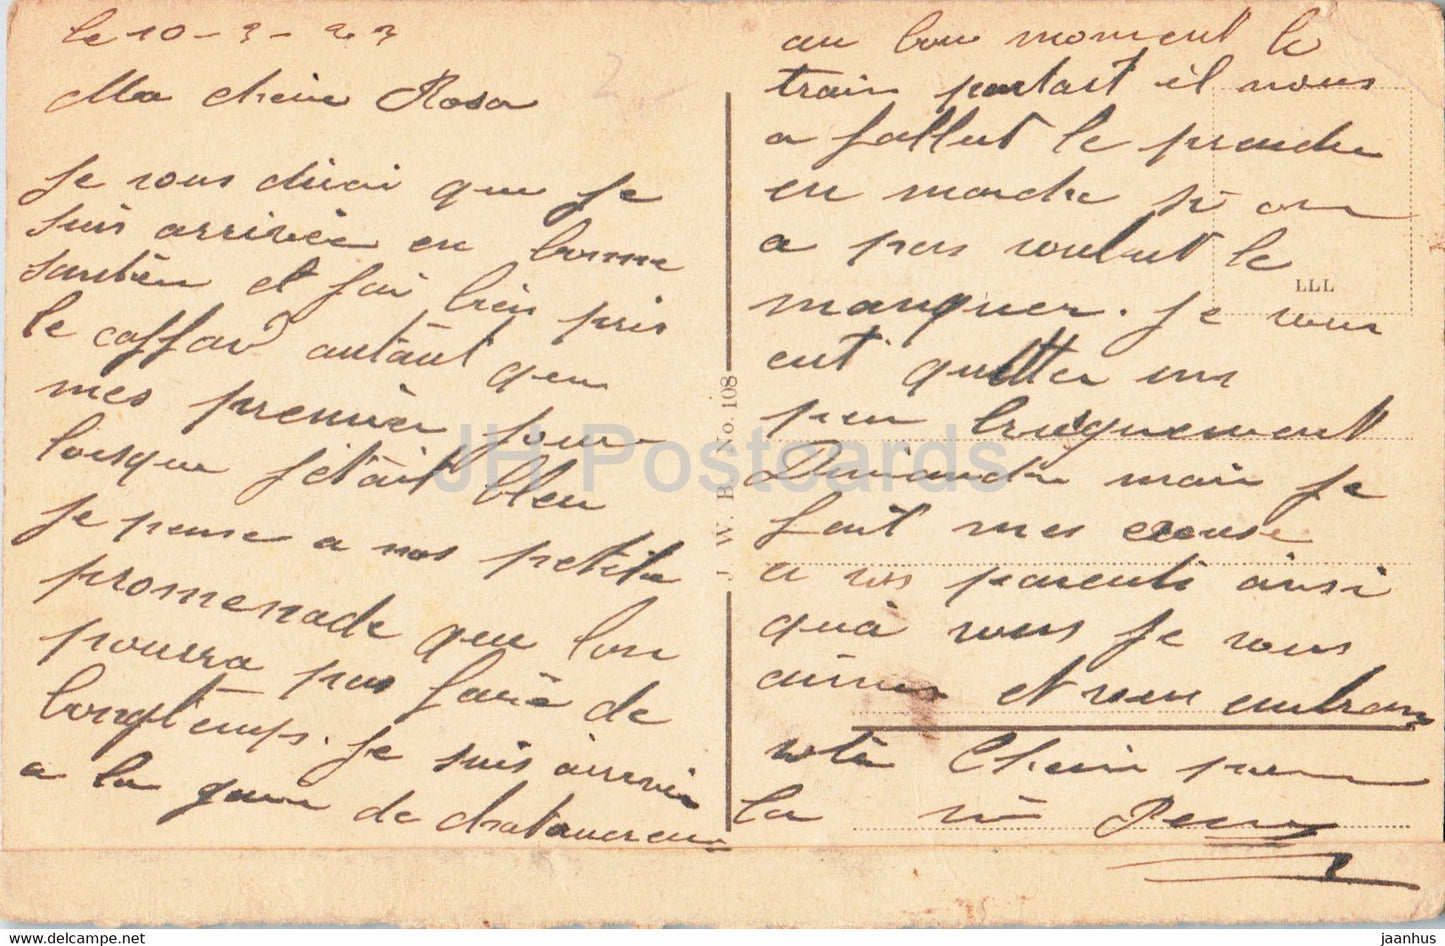 le 10-3-23
Ma cheire Rosa
Je vous dirai que je
suis arrivée en bonne
santéu et fai bien pris
le caffar autant que
mes premier jour
lorsque j'etait bleu
je pense a nos petite
promenade que lon
pourra pas faire de
longtemps. Je suis arriver
a la gare de
au bon moment le
train partait il nous
a fallut le prendre
en marche si on
a pas voulut le
manquer. Je vous
eut quitter un
peu brusquement
Dimanche mais je
fait mes excuse
a vos parents ainsi
qua vous je vous
aimes et vous embrasse
votre Cheri pour
la vie
J. W. B. No. 108
LLL
JH Postcards
www.delcampe.net
jaanhus